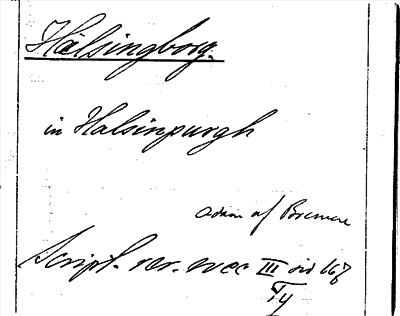 Hälsingborg.
in Halsinpurgh
Adam af Bremen
Script. rer. svec III sid
Ty